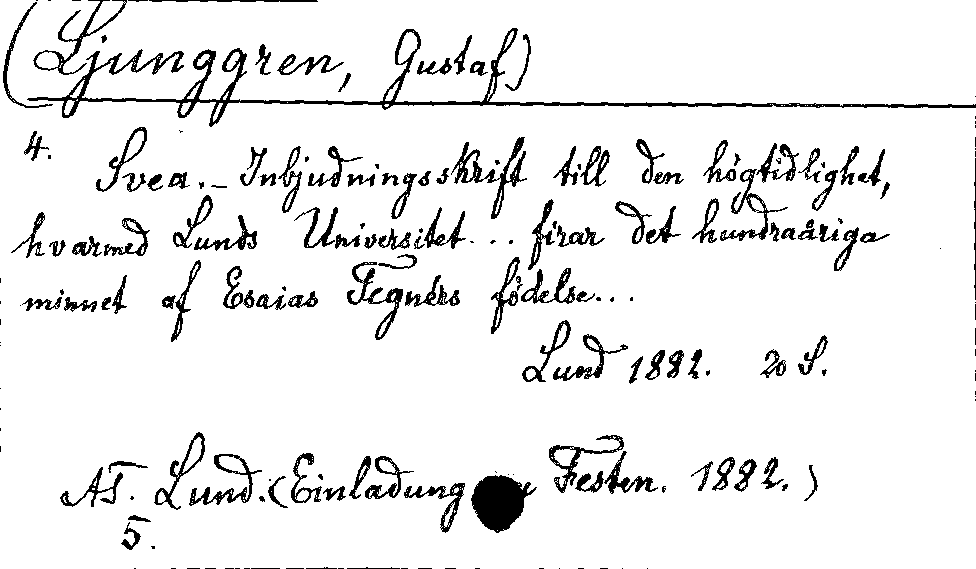 (Ljunggren, Gustaf)
4.
Svea. – Inbjudningsskrift till den högtidlighet,
hvarmed Lunds Universitet ... firar det hundraåriga
minnet af Esaias Tegnérs födelse...
Lund 1882. 20 S.
AT. Lund. (Einladung Festen. 1882.)
5.